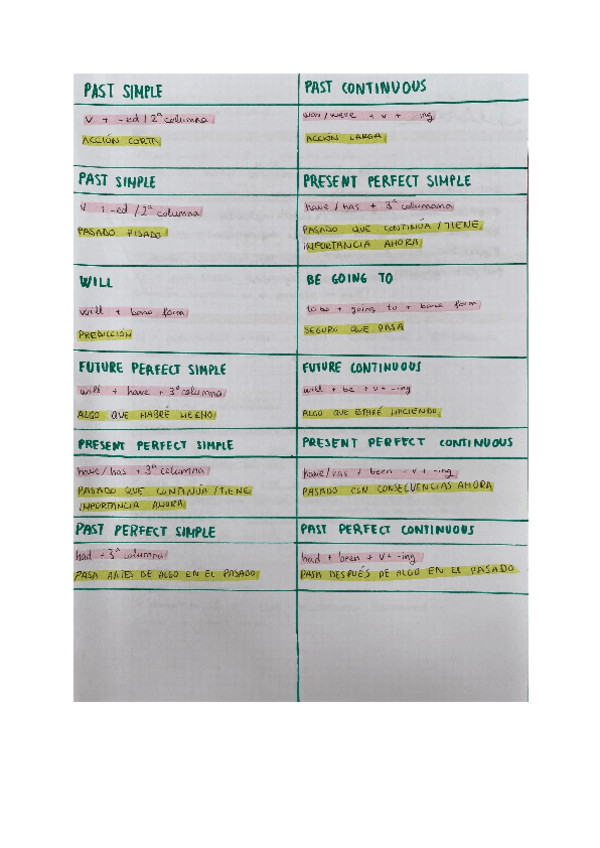 PAST SIMPLE
V + -ed / 2ª columna
ACCIÓN CORTA
PAST CONTINUOUS
was/were + v + -ing
ACCIÓN LARGA
PAST SIMPLE
V + -ed / 2ª columna
PASADO PISADO
PRESENT PERFECT SIMPLE
have / has + 3ª columna
PASADO QUE CONTINÚA / TIENE
IMPORTANCIA AHORA
WILL
will + bare form
PREDICCIÓN
BE GOING TO
to be + going to + bare form
SEGURO QUE PASA
FUTURE PERFECT SIMPLE
will + have + 3ª columna
ALGO QUE HABRÉ HECHO
FUTURE CONTINUOUS
will + be + v + -ing
ALGO QUE ESTARÉ HACIENDO
PRESENT PERFECT SIMPLE
have/has + 3ª columna
PASADO QUE CONTINÚA / TIENE
IMPORTANCIA AHORA
PRESENT PERFECT CONTINUOUS
have/has + been + v + -ing
PASADO CON CONSECUENCIAS AHORA
PAST PERFECT SIMPLE
had + 3ª columna
PASA ANTES DE ALGO EN EL PASADO
PAST PERFECT CONTINUOUS
had + been + v + -ing
PASA DESPUÉS DE ALGO EN EL PASADO